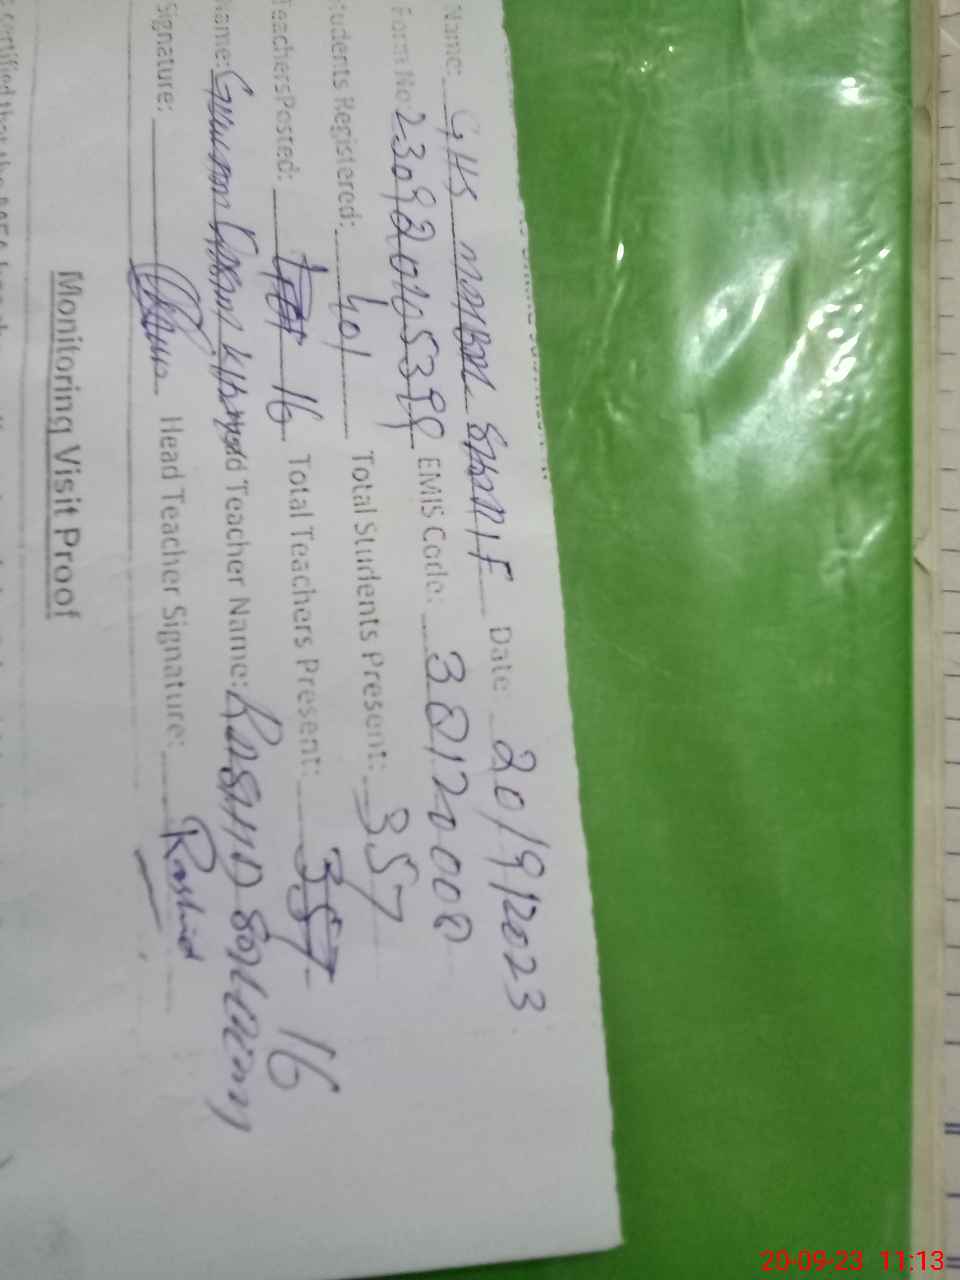 Name: GHS MOMBAR SHARIF Date: 20/9/2023
Form No: 2309201405399 EMIS Code: 38120008
Students Registered: 401 Total Students Present: 357
Teachers Posted: 16 Total Teachers Present: 357 16
Name: Ghulam Head Teacher Name: RASHID
Signature: Head Teacher Signature: Rashid
Monitoring Visit Proof
certified that the
20-09-23 11:13